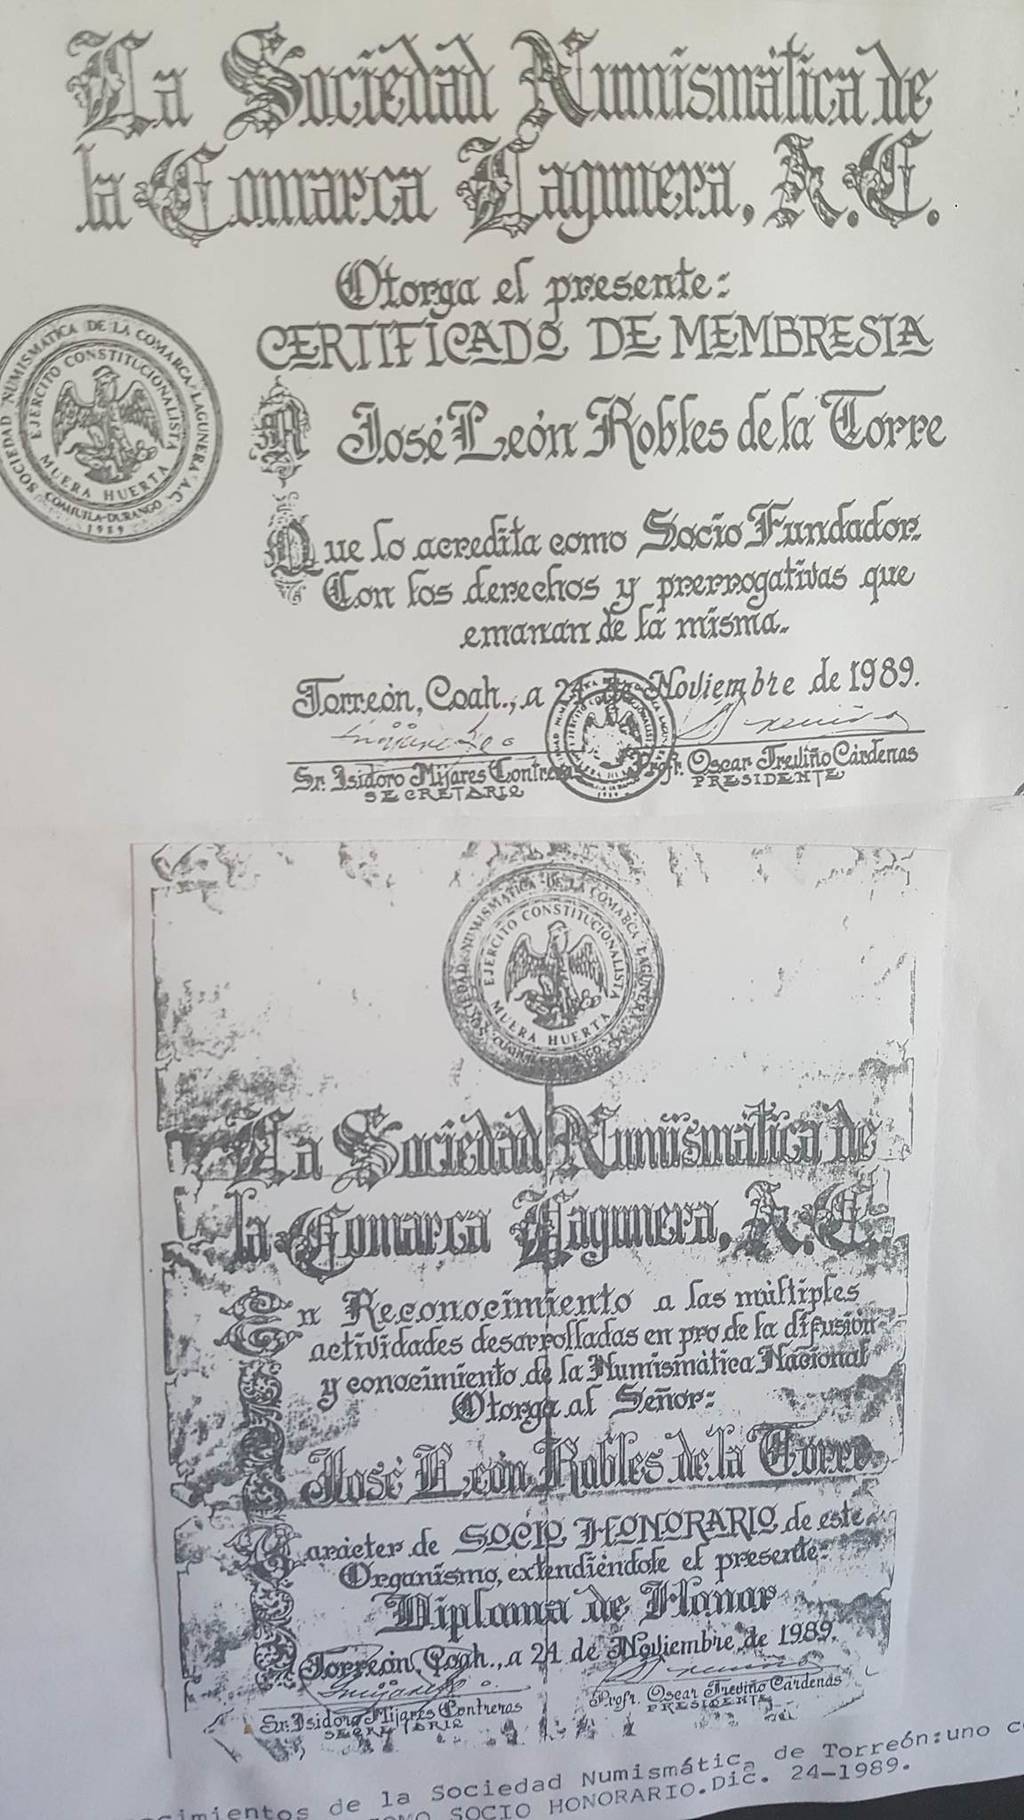 La Sociedad Numismática de
la Comarca Lagunera, A.C.
Otorga el presente:
CERTIFICADO DE MEMBRESIA
A José León Robles de la Torre
Que lo acredita como Socio Fundador.
Con los derechos y prerrogativas que
emanan de la misma.
Torreón, Coah., a 24 de Noviembre de 1989.
Sr. Isidoro Mijares Contreras
SECRETARIO
Profr. Oscar Treviño Cárdenas
PRESIDENTE
SOCIEDAD NUMISMATICA DE LA COMARCA LAGUNERA A.C.
EJERCITO CONSTITUCIONALISTA
MUERA HUERTA
COAHUILA-DURANGO
1989
SOCIEDAD NUMISMATICA DE LA COMARCA LAGUNERA
EJERCITO CONSTITUCIONALISTA
MUERA HUERTA
La Sociedad Numismática de
la Comarca Lagunera, A.C.
En Reconocimiento a las múltiples
actividades desarrolladas en pro de la difusión
y conocimiento de la Numismática Nacional
Otorga al Señor:
José León Robles de la Torre
Carácter de SOCIO HONORARIO de este
Organismo, extendiéndole el presente:
Diploma de Honor
Torreón, Coah., a 24 de Noviembre de 1989.
Sr. Isidoro Mijares Contreras
SECRETARIO
Profr. Oscar Treviño Cárdenas
PRESIDENTE
cimientos de la Sociedad Numismática de Torreón:uno c
OMO SOCIO HONORARIO.Dic. 24-1989.